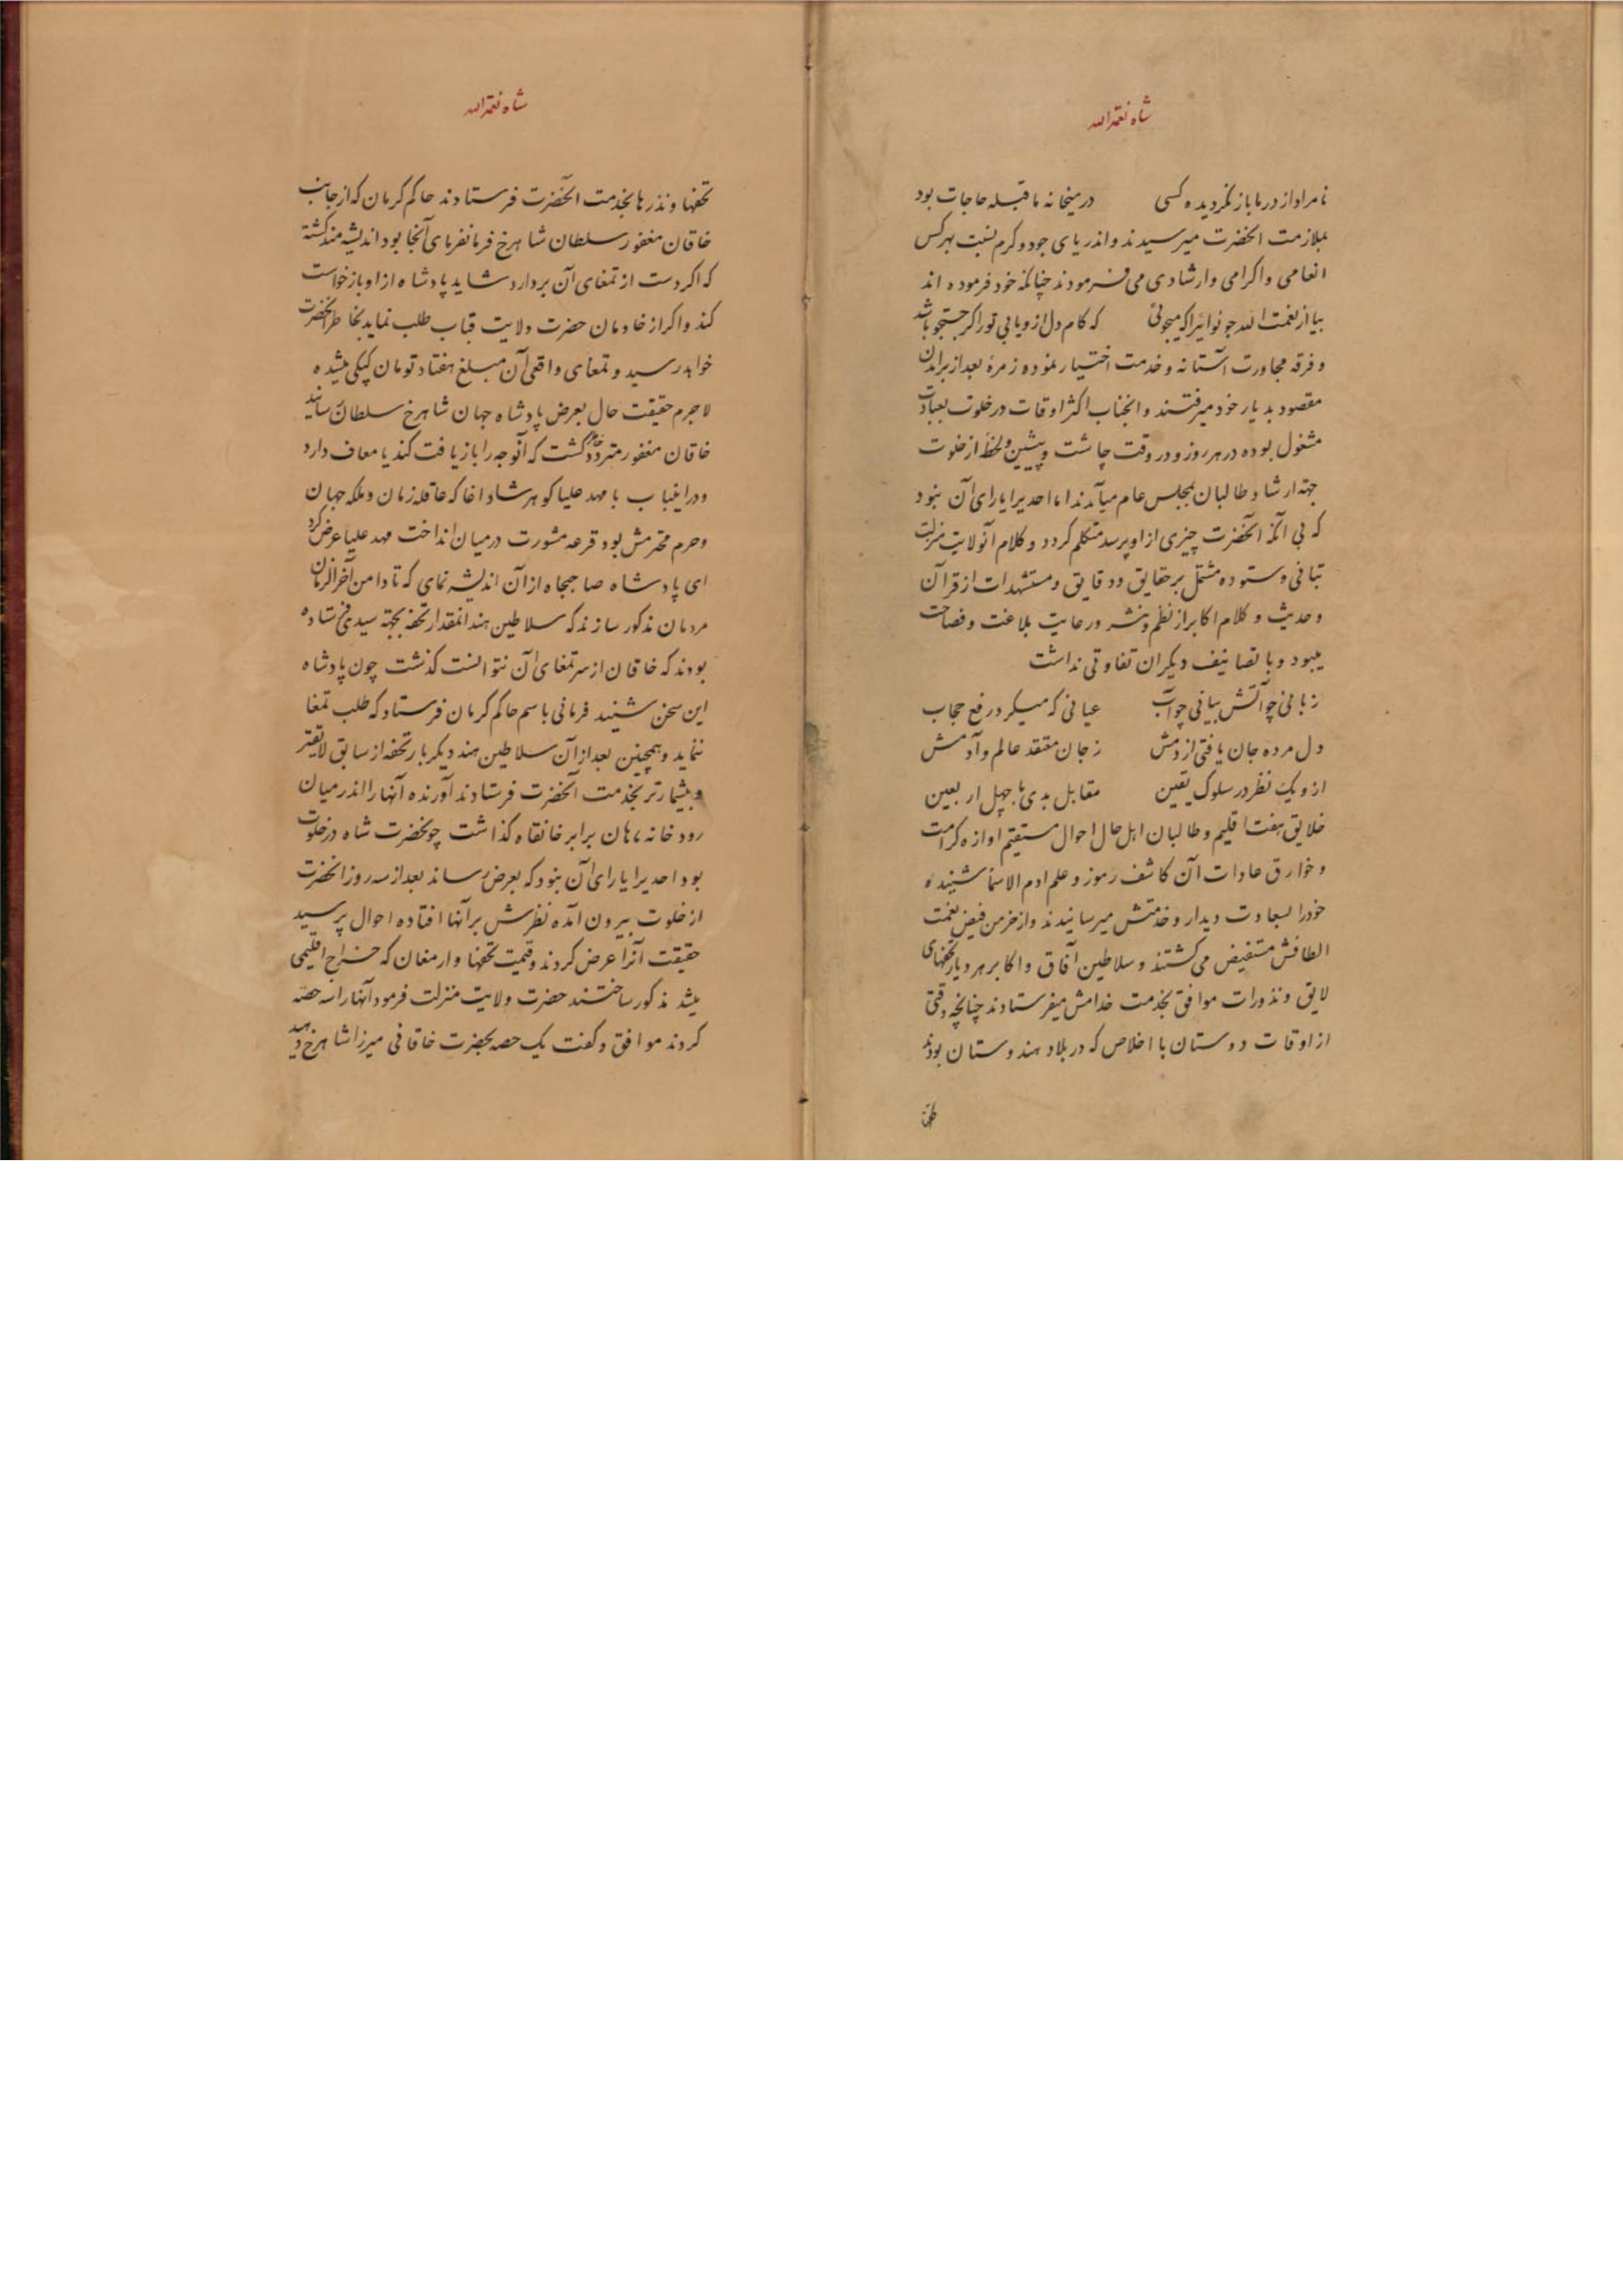 شاه نعمة الله
نامراد از در ما باز نگردیده کسی در میخانه ما قبله حاجات بود
بملازمت آنحضرت میرسیدند و اندریای جود و کرم نسبت بهرکس
انعامی و اکرامی و ارشادی می فرمودند چنانکه خود فرموده اند
بیا از نعمت الله جو نوائیرا که میجوئی که کام دل ازو یابی تو را گر جستجو باشد
و فرقه مجاورت آستانه و خدمت اختیار نموده و زمرهٔ بعد از برآمدن
مقصود بدیار خود میرفتند و انجناب اکثر اوقات در خلوت بعبادت
مشغول بوده در هر روز و در وقت چاشت و پیشین ولحظهٔ از خلوت
جهة ارشاد طالبان بمجلس عام میآمدند اما احدیرا یارای آن نبود
که بی آنکه آنحضرت چیزی از او پرسد متکلم گردد و کلام آنولایت منزلت
بتانی و ستوده مشتمل بر حقایق و دقایق و مستشهدات از قرآن
و حدیث و کلام اکابر از نظم و نثر و رعایت بلاغت و فصاحت
میبود و با تصانیف دیگران تفاوتی نداشت
زبانی چو آتش بیانی چو آب عیانی که میکرد رفع حجاب
دل مرده جان یافتی از دمش ز جان معتقد عالم و آدمش
ازو یک نظر در سلوک یقین مقابل بدی با چهل اربعین
خلایق هفت اقلیم و طالبان اهل حال احوال مستقیم اوازه کرامت
و خوارق عادات آن کاشف رموز و علم ادم الاسماء شنیده
خودرا بسعادت دیدار و خدمتش میرسانیدند و از خرمن فیض نعمت
الطافش مستفیض می گشتند و سلاطین آفاق و اکابر هر دیار تحفهای
لایق و نذورات موافق بخدمت خدامش میفرستادند چنانچه وقتی
از اوقات دوستان با اخلاص که در بلاد هندوستان بودند
شاه نعمة الله
تحفها و نذرها بخدمت آنحضرت فرستادند حاکم کرمان که از جانب
خاقان مغفور سلطان شاهرخ فرمانفرمای آنجا بود اندیشه مند گشته
که اگر دست از تمغای آن بردارد شاید پادشاه از او بازخواست
کند و اگر از خادمان حضرت ولایت قباب طلب نماید بخاطر آنحضرت
خواهد رسید و تمغای واقعی آن مبلغ هفتاد تومان کپکی میشده
لاجرم حقیقت حال بعرض پادشاه جهان شاهرخ سلطان رسانید
خاقان مغفور متردد گشت که آنوجه را بازیافت کند یا معاف دارد
و دراینباب با مهد علیا گوهرشاد اغا که عاقله زمان و ملکه جهان
و حرم محترمش بود قرعه مشورت درمیان انداخت مهد علیا عرض کرد
ای پادشاه صاحبجاه از آن اندیشه نمای که تا دامن آخرالزمان
مردمان مذکور سازند که سلاطین هند انمقدار تحفه بجهة سیدی فرستاده
بودند که خاقان از سر تمغای آن نتوانست گذشت چون پادشاه
این سخن شنید فرمانی باسم حاکم کرمان فرستاد که طلب تمغا
ننماید و همچنین بعد از آن سلاطین هند دیگر بار تحفه از سابق لایقتر
و بیشمارتر بخدمت آنحضرت فرستادند آورنده آنها را اندر میان
رودخانه ماهان برابر خانقاه گذاشت چو نحضرت شاه در خلوت
بود احدیرا یارای آن نبود که بعرض رساند بعد از سه روز انحضرت
از خلوت بیرون آمده نظرش بر آنها افتاده احوال پرسید
حقیقت آنرا عرض کردند و قیمت تحفها و ارمغان که خراج اقلیمی
میشد مذکور ساختند حضرت ولایت منزلت فرمود آنها را سه حصه
کردند موافق و گفت یک حصه بحضرت خاقانی میرزا شاهرخ دهید